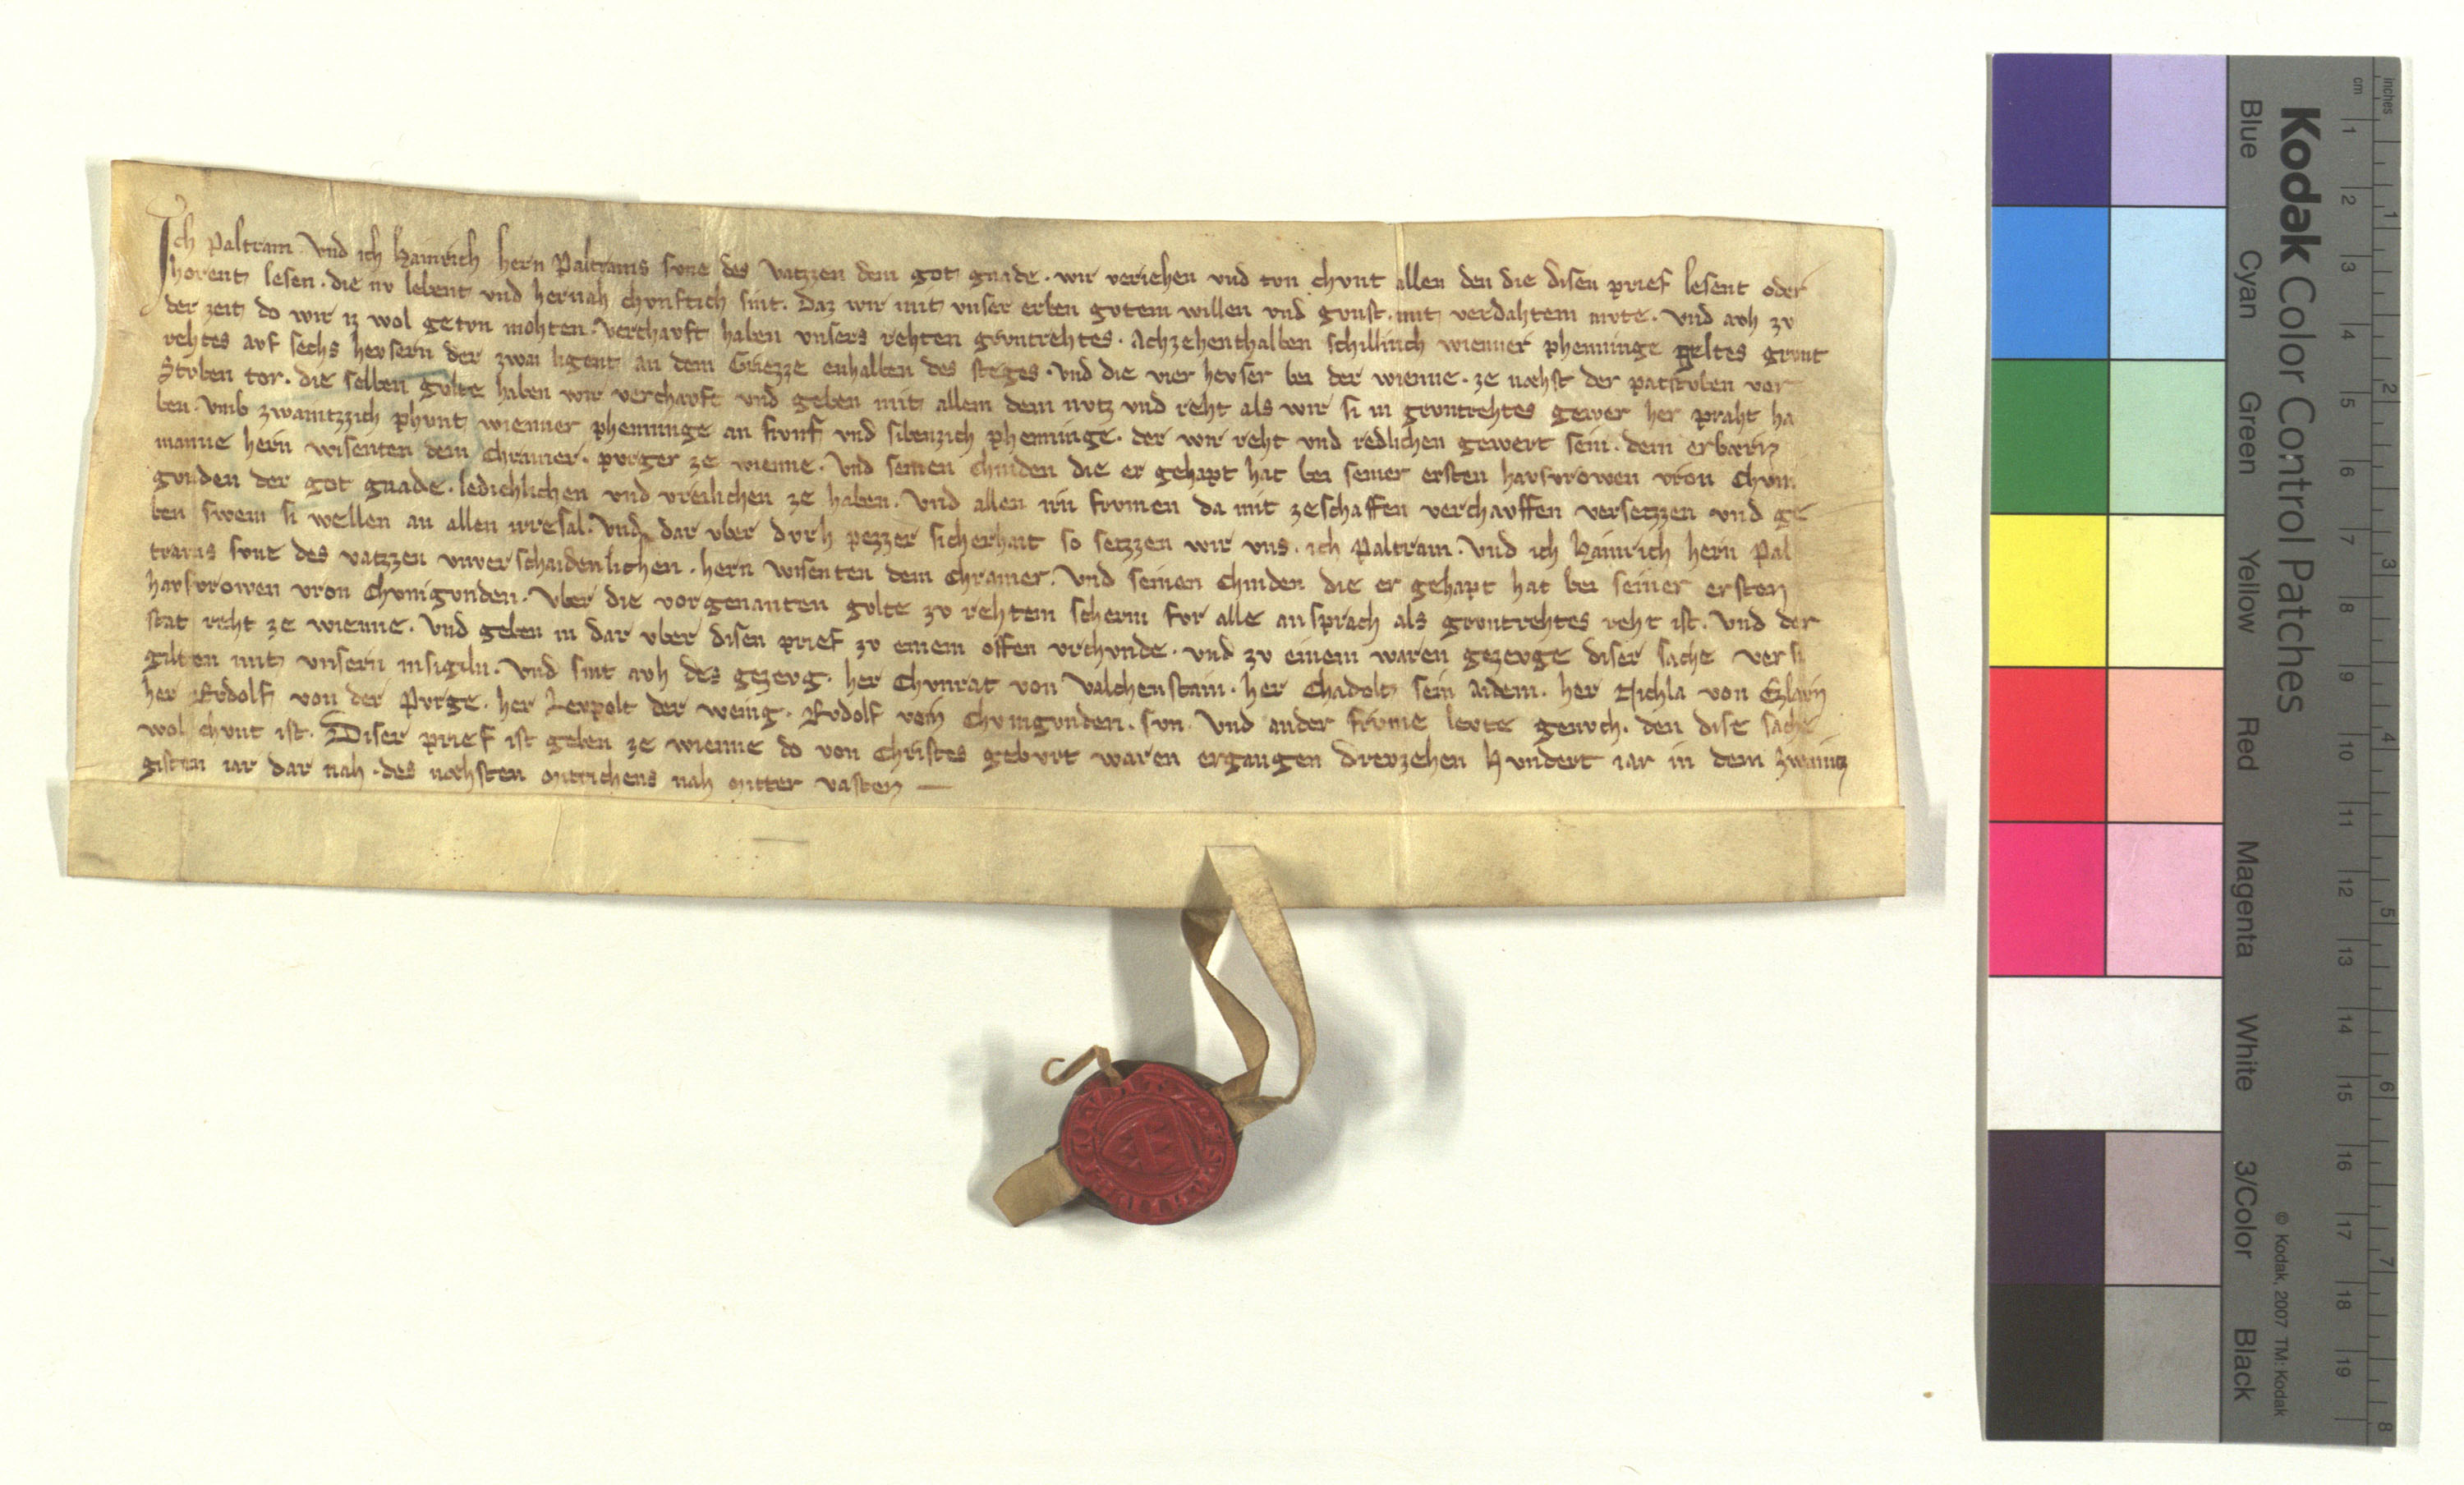 Ich Paltram Vnd ich Hainrich hern Paltrams svne des Vatzzen dem got gnade. wir veriehen vnd tvn chvnt allen den die disen prief lesent oder
horent lesen. die nv lebent vnd hernah chvnftich sint. Daz wir mit vnser erben gvtem willen vnd gvnst. mit verdahtem mvte. vnd avh zv
der zeit do wir iz wol getvn mohten. verchavft haben vnsers rehten grvntrehtes. Achzehenthalben schillinch wienner phenninge geltes grvnt
rehtes avf sechs hevsern der zwai ligent an dem Griezze enhalben des steges. vnd die vier hevser bei der wienne. ze næhst der patstvben vor
Stvben tor. die selben gvlte haben wir verchavft vnd geben mit allem dem nvtz vnd reht als wir si in grvntrehtes gewer her praht ha
ben. vmb zwaintzzich phvnt wienner phenninge an fvnf vnd sibenzich phenninge. der wir reht vnd redlichen gewert sein. dem erbærn
manne hern wisenten dem Chramer. pvrger ze wienne. Vnd seinen chinden die er gehapt hat bei seiner ersten havsvrowen vron Chvni
gvnden der got gnade. ledichlichen vnd vreilichen ze haben. Vnd allen irn frvmen da mit zeschaffen verchavffen versetzzen vnd ge
ben swem si wellen an allen irresal. Vnd dar vber dvrh pezzer sicherhait so setzzen wir vns. ich Paltram. Vnd ich Hainrich hern Pal
trams svne des vatzzen vnverschaidenlichen. hern wisenten dem Chramer. Vnd seinen Chinden die er gehapt hat bei seiner ersten
havsvrowen vron Chvnigvnden. Vber die vorgenanten gvlte zv rehtem scherm fvr alle ansprach als grvntrehtes reht ist. Vnd der
stat reht ze wienne. Vnd geben in dar vber disen prief zv einem offen vrchvnde. vnd zv einem waren gezevge diser sache versi
gilten mit vnsern insigiln. Vnd sint avh des gezevg. her Chvnrat von Valchenstain. her Chadolt sein Aidem. her Nichla von Ezlarn
her Rvdolf von der Pvrge. her Levpolt der wenig. Rvdolf vern Chvnigvnden. svn. Vnd ander frvme levte genvch. den dise sache
wol chvnt ist. Diser prief ist geben ze wienne do von Christes gebvrt waren ergangen Drevzehen Hvndert iar in dem zwainz
gisten iar dar nah. des næhsten mitichens nah mitter vasten
Kodak Color Control Patches
© Kodak, 2007 TM: Kodak
Blue Cyan Green Yellow Red Magenta White 3/Color Black
cm 1 2 3 4 5 6 7 8 9 10 11 12 13 14 15 16 17 18 19
inches 1 2 3 4 5 6 7 8